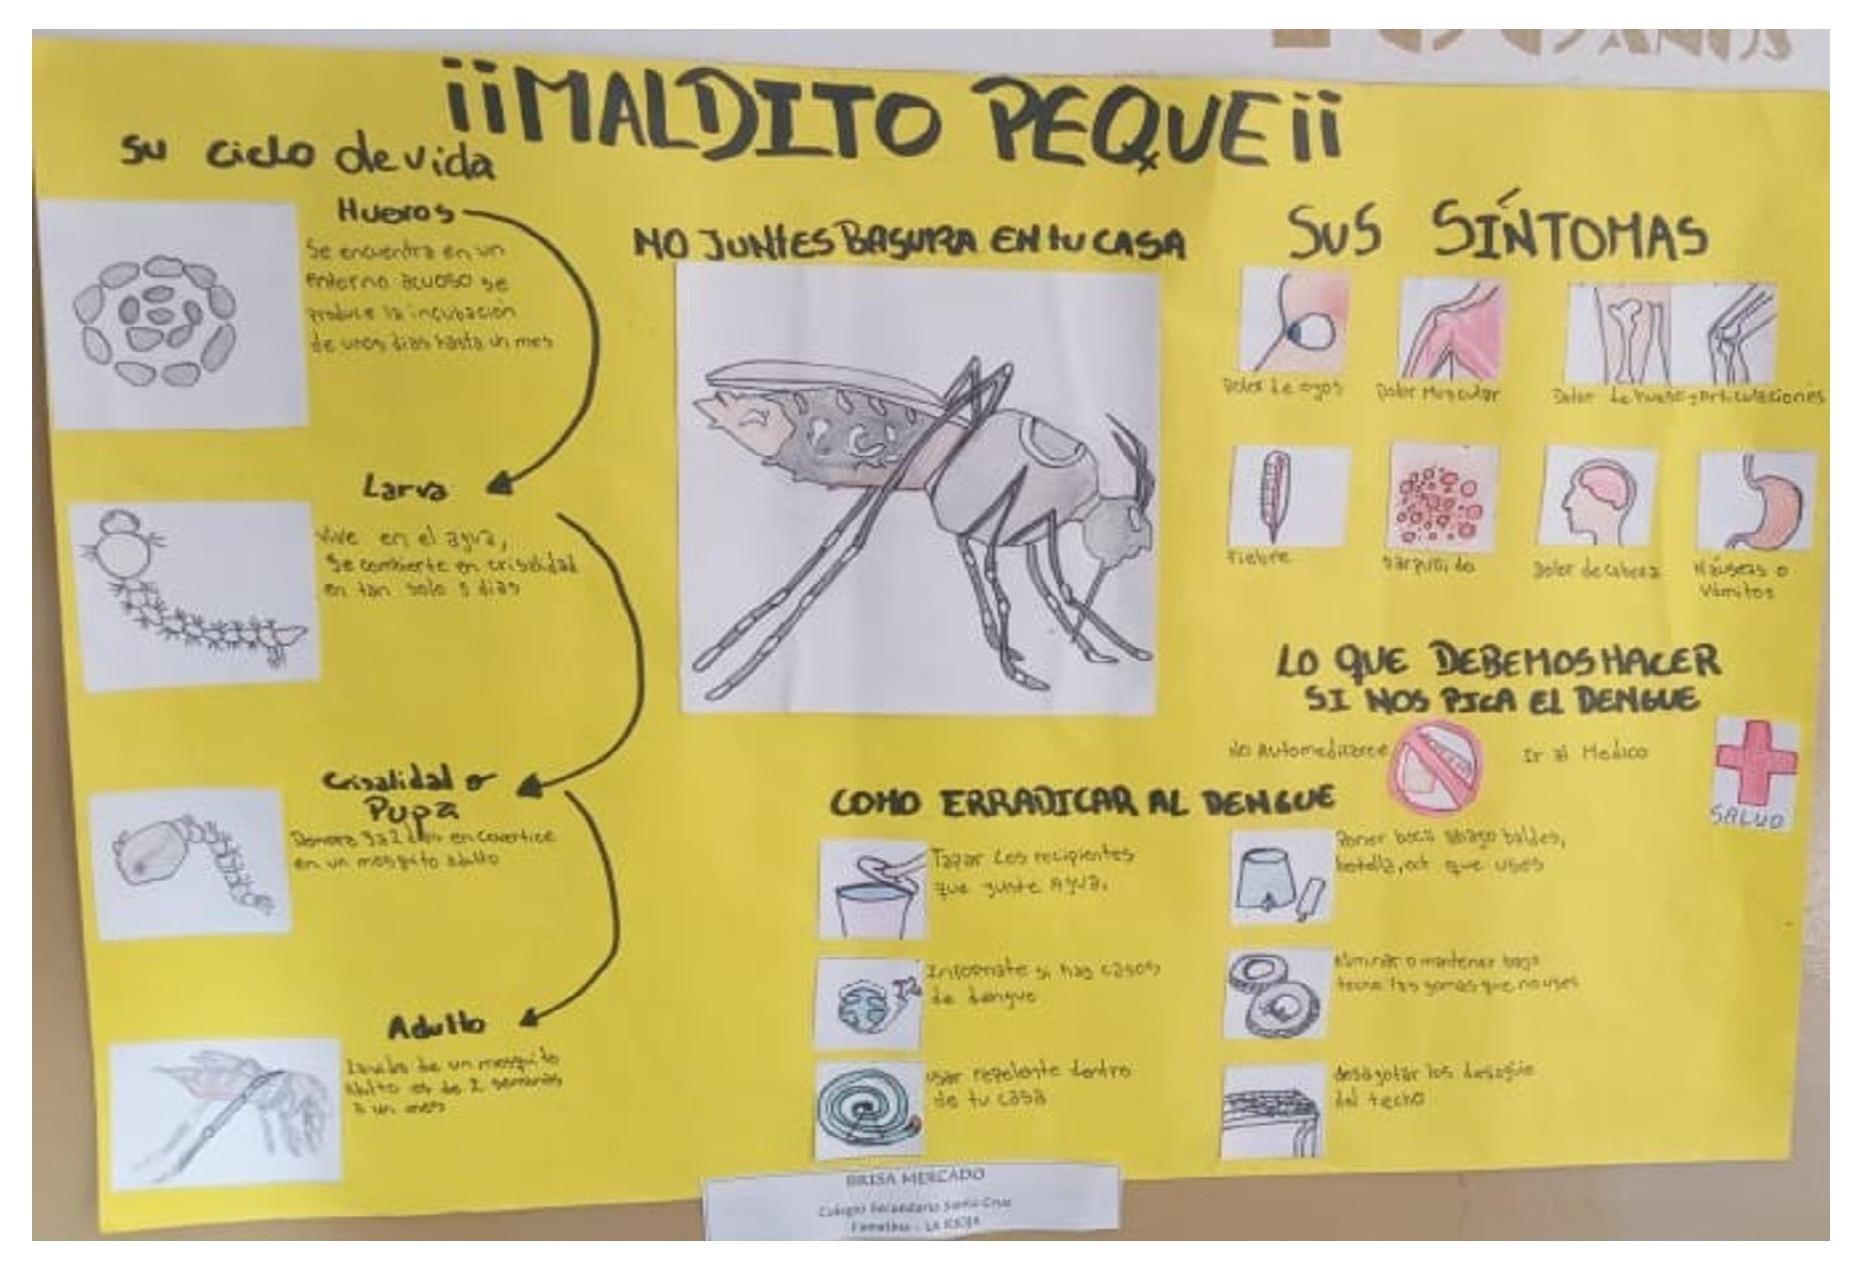 ¡¡MALDITO PEQUE¡¡
su ciclo de vida
Huevos
Se encuentra en un
entorno acuoso se
produce la incubación
de unos dias hasta un mes
Larva
Vive en el agua,
Se combierte en crisalidad
en tan solo 5 dias
Crisalidad o
Pupa
en covertice
en un mosquito adulto
Adulto
de un mosquito
adulto es de 2 semanas
a un mes
NO JUNTES BASURA EN tu CASA
SUS SÍNTOMAS
Dolor de ojos
Dolor Muscular
Dolor de hueso y articulaciones
Fiebre
Sarpullido
Dolor de cabeza
Náuseas o
Vómitos
LO QUE DEBEMOS HACER
SI NOS PICA EL DENGUE
No Automedicarce
Ir al Medico
SALUD
COMO ERRADICAR AL DENGUE
Tapar Los recipientes
que junte Agua.
Informate si hay casos
de dengue
usar repelente dentro
de tu casa
Poner boca abajo baldes,
botella, ect que uses
eliminar o mantener bajo
techo las gomas que no uses
desagotar los desagüe
del techo
BRISA MERCADO
Colegio Secundario Santa Cruz
Famatina - LA RIOJA